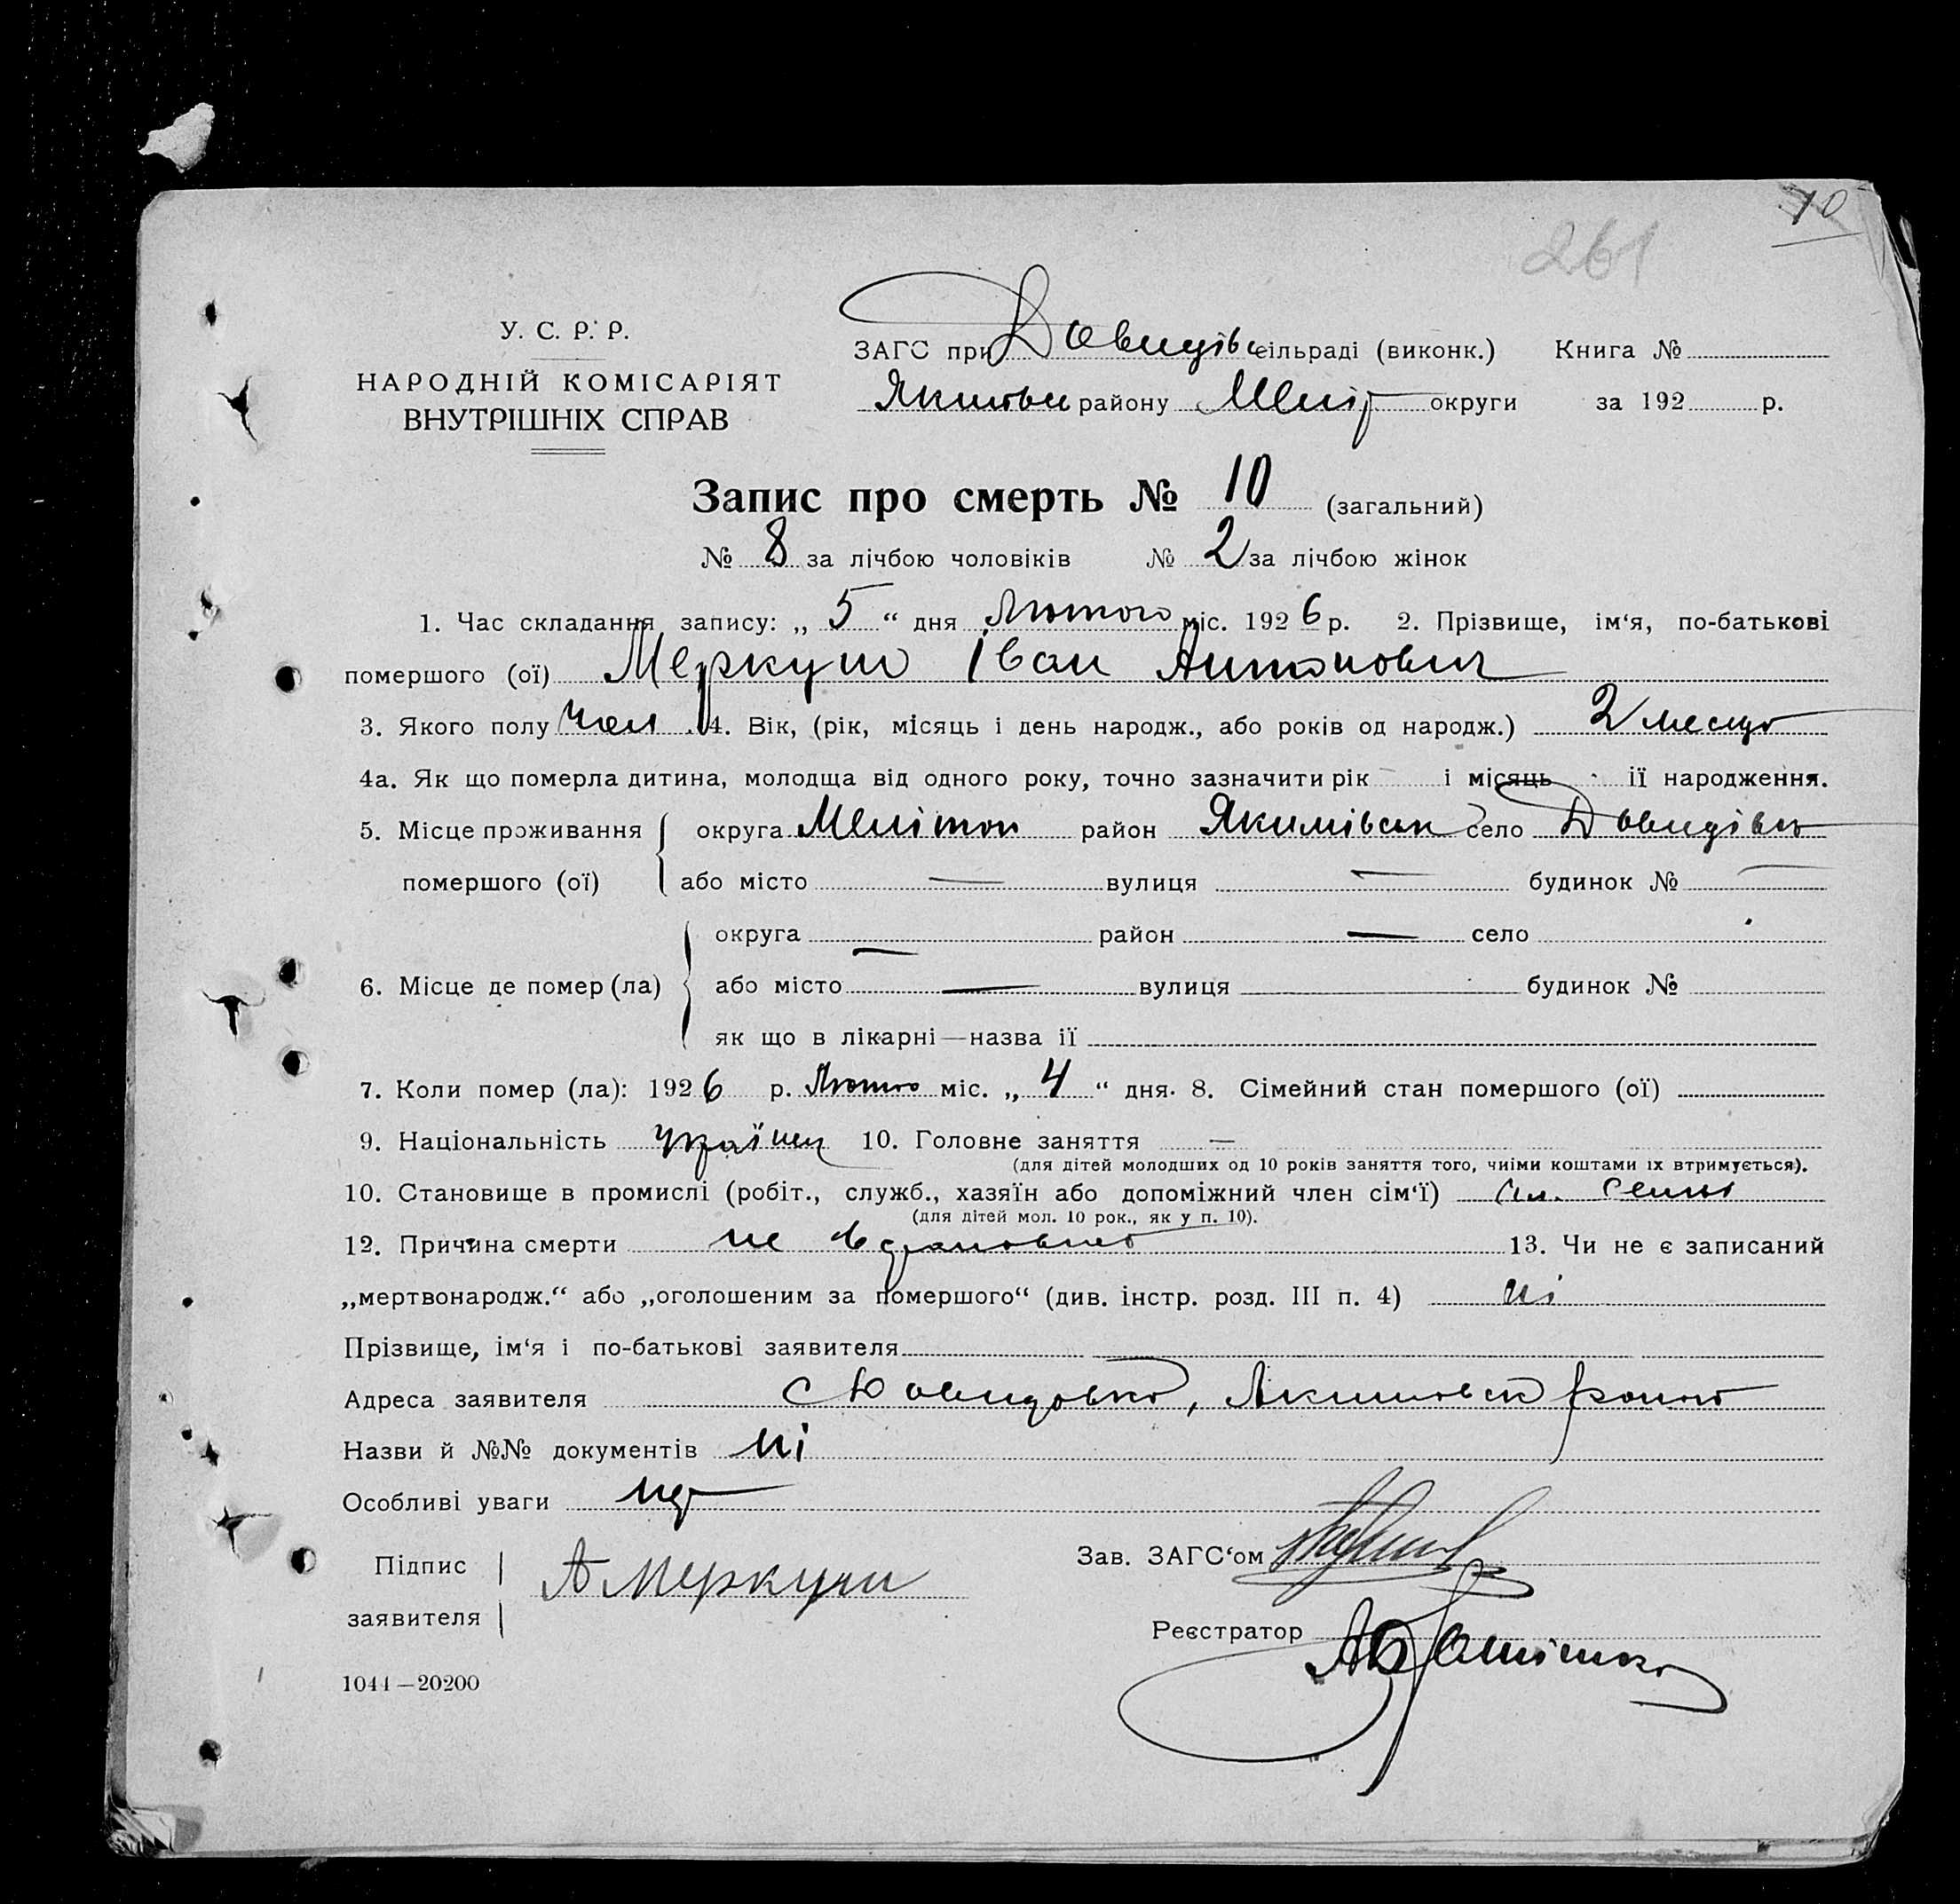 10
261
У. С. Р. Р.
НАРОДНІЙ КОМІСАРІЯТ
ВНУТРІШНІХ СПРАВ
ЗАГС при Довидівс сільраді (виконк.) Книга №
Якимовс району Меліт округи за 192 р.
Запис про смерть № 10 (загальний)
№ 8 за лічбою чоловіків № 2 за лічбою жінок
1. Час складання запису: „ 5 “ дня Лютого міс. 1926 р. 2. Прізвище, ім‘я, по-батькові
помершого (ої) Меркуш Іван Антонович
3. Якого полу Чол. 4. Вік, (рік, місяць і день народж., або років од народж.) 2 месяца
4а. Як що померла дитина, молодща від одного року, точно зазначити рік і місяць її народження.
5. Місце проживання округа Мелітоп район Якимівськ село Довидівка
помершого (ої) або місто — вулиця — будинок № —
округа — район — село
6. Місце де помер (ла) або місто — вулиця будинок №
як що в лікарні—назва її
7. Коли помер (ла): 1926 р. Лютого міс. „ 4 “ дня. 8. Сімейний стан помершого (ої)
9. Національність Українец 10. Головне заняття —
(для дітей молодших од 10 років заняття того, чиїми коштами їх втримується).
10. Становище в промислі (робіт., служб., хазяїн або допоміжний член сім‘ї) семьи
(для дітей мол. 10 рок., як у п. 10).
12. Причина смерти не 13. Чи не є записаний
„мертвонародж.“ або „оголошеним за помершого“ (див. інстр. розд. III п. 4) ні
Прізвище, ім‘я і по-батькові заявителя
Адреса заявителя с Довидовка, Якимовск района
Назви й №№ документів ні
Особливі уваги
Підпис
заявителя А Меркуш
Зав. ЗАГС‘ом
Реєстратор
1044—20200